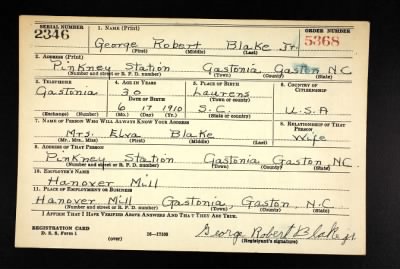 SERIAL NUMBER 1. NAME (Print) ORDER NUMBER
2346 George Robert Blake Jr. 5368
(First) (Middle) (Last)
2. ADDRESS (Print)
Pinkney Station Gastonia Gaston NC
(Number and street or R. F. D. number) (Town) (County) (State)
3. TELEPHONE 4. AGE IN YEARS 5. PLACE OF BIRTH 6. COUNTRY OF CITIZENSHIP
Gastonia 30 Laurens
DATE OF BIRTH (Town or county)
6 17 1910 S.C. U.S.A
(Exchange) (Number) (Mo.) (Day) (Yr.) (State or country)
7. NAME OF PERSON WHO WILL ALWAYS KNOW YOUR ADDRESS 8. RELATIONSHIP OF THAT PERSON
Mrs. Elva Blake Wife
(Mr., Mrs., Miss) (First) (Middle) (Last)
9. ADDRESS OF THAT PERSON
Pinkney Station Gastonia Gaston NC.
(Number and street or R. F. D. number) (Town) (County) (State)
10. EMPLOYER'S NAME
Hanover Mill
11. PLACE OF EMPLOYMENT OR BUSINESS
Hanover Mill Gastonia, Gaston, N.C
(Number and street or R. F. D. number) (Town) (County) (State)
I AFFIRM THAT I HAVE VERIFIED ABOVE ANSWERS AND THAT THEY ARE TRUE.
REGISTRATION CARD George Robert Blake Jr.
D. S. S. Form 1 (over) 16—17105 (Registrant's signature)